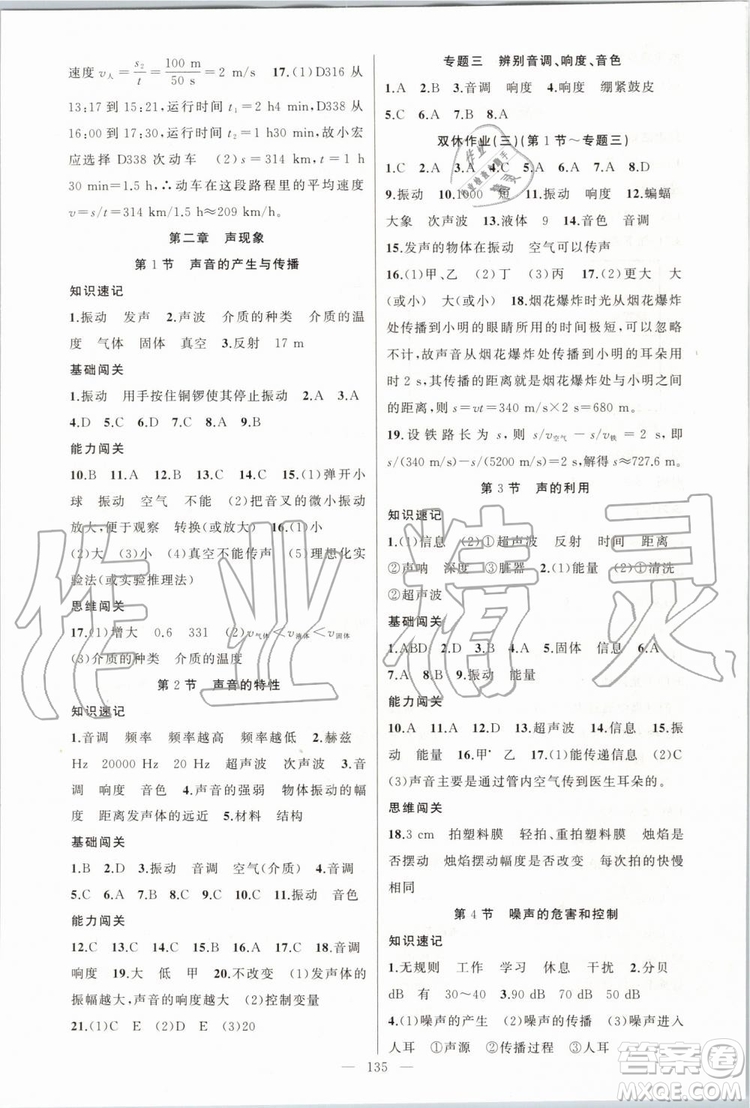 速度 v人=s₂/t=100 m/50 s 17.(1)D316 从
13:17 到 15:21,运行时间 t₁=2 h4 min,D338 从
16:00 到 17:30,运行时间 t₂=1 h30 min,故小宏
应选择 D338 次动车 (2)s=314 km t=1 h
30 min=1.5 h∴动车在这段路程里的平均速度
v=s/t=314 km/1.5 h≈209 km/h.
第二章 声现象
第 1 节 声音的产生与传播
知识速记
1.振动 发声 2.声波 介质的种类 介质的温
度 气体 固体 真空 3.反射 17 m
基础闯关
1.振动 用手按住铜锣使其停止振动 2.C 3.D
4.D 5.C 6.C 7.B 8.A 9.B
能力闯关
10.B 11.A 12.C 13.C 14.D 15.(1)弹开小
球 振动 空气 不能 (2)把音叉的微小振动
放大,便于观察 转换(或放大) 16.(1)小
(2)大 (3)小 (4)真空不能传声 (5)理想化实
验法(或实验推理法)
思维闯关
17.(1)增大 0.6 331 (2)v气体<v液体<v固体
(3)介质的种类 介质的温度
第 2 节 声音的特性
知识速记
1.音调 频率 频率越高 频率越低 2.赫兹
Hz 20000 Hz 20 Hz 超声波 次声波 3.音调
响度 音色 4.声音的强弱 物体振动的幅
度 距离发声体的远近 5.材料 结构
基础闯关
1.B 2.D 3.振动 音调 空气(介质) 4.音调
5.C 6.A 7.C 8.C 9.C 10.A 11.振动 音色
能力闯关
12.C 13.A 14.C 15.C 16.C 17.D 18.音调
响度 19.大 低 甲 20.不改变 (1)发声体的
振幅越大,声音的响度越大 (2)控制变量
21.(1)C D E (2)D E (3)20
专题三 辨别音调、响度、音色
1.A 2.B 3.音调 响度 4.响度 绷紧鼓皮
5.C 6.A 7.B 8.A
双休作业(三)(第 1 节~专题三)
1.C 2.C 3.C 4.A 5.C 6.A 7.B 8.D
9.振动 10.1000 短 11.振动 响度 12.蝙蝠
大象 次声波 13.液体 9 14.音色 音调
15.发声的物体在振动 空气可以传声
16.(1)甲、乙 (2)甲 (3)丙 17.更大 大
(或小) 大(或小) 18.烟花爆炸时光从烟花爆炸
处传播到小明的眼睛所用的时间极短,可以忽略
不计,故声音从烟花爆炸处传播到小明的耳朵用
时 2 s,其传播的距离即为烟花爆炸处与小明之间
的距离,则 s=vt=340 m/s×2 s=680 m.
19.设铁路长为 s,则 s/v空气-s/v铁=2 s,即
s/(340 m/s)-s/(5200 m/s)=2 s,解得 s≈727.6 m.
第 3 节 声的利用
知识速记
1.(1)信息 (2)①超声波 反射 时间 距离
②声呐 深度 ③脏器 2.(1)能量 (2)①清洗
②超声波
基础闯关
1.ABD 2.D 3.D 4.B 5.固体 信息 6.A
7.B 8.B 9.振动 能量
能力闯关
10.A 11.D 12.A 13.超声波 14.信息 15.振
动 能量 16.甲 乙 17.(1)能传递信息 (2)C
(3)声音主要是通过管内空气传到医生耳朵的。
思维闯关
18.3 cm 拍塑料膜 轻拍、重拍塑料膜 烛焰是
否摆动 烛焰摆动幅度是否改变 每次拍的快慢
相同
第 4 节 噪声的危害和控制
知识速记
1.无规则 工作 学习 休息 干扰 2.分贝
dB 有 30~40 3.90 70 50 dB
4.(1)噪声的产生 (2)噪声的传播 (3)噪声进入
人耳 ①声源 ②传播过程 ③人耳
135
作业精灵
答案圈
MXQE.COM